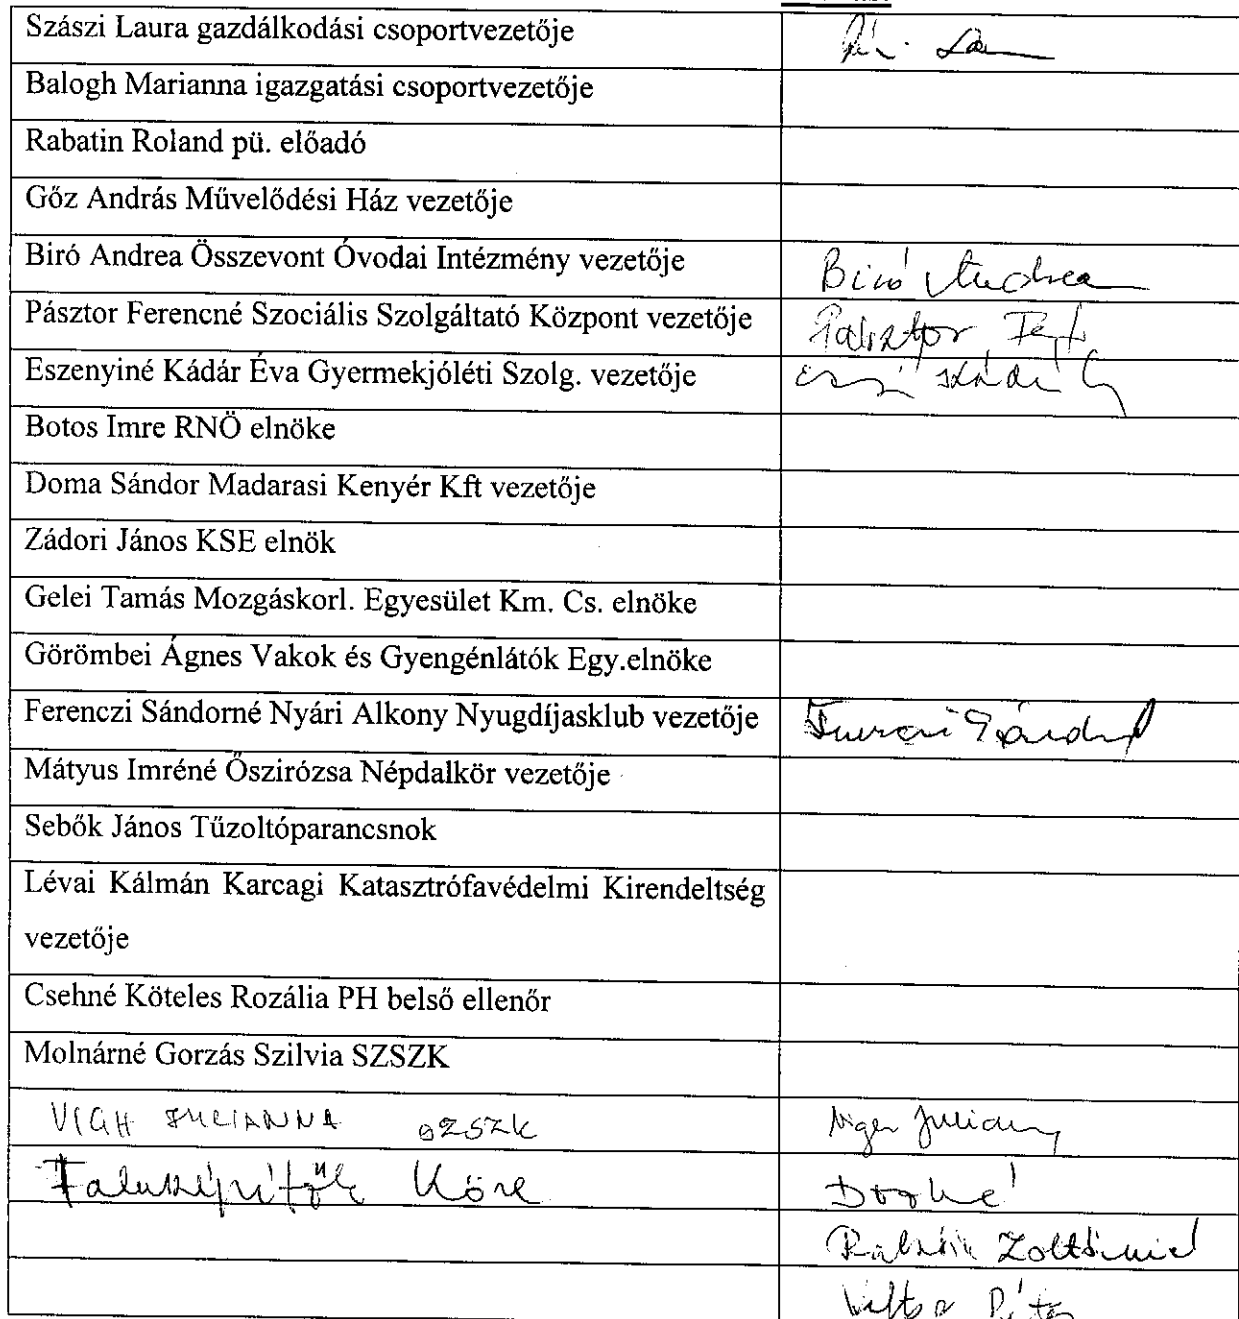 Szászi Laura gazdálkodási csoportvezetője
Balogh Marianna igazgatási csoportvezetője
Rabatin Roland pü. előadó
Gőz András Művelődési Ház vezetője
Biró Andrea Összevont Óvodai Intézmény vezetője Biró Andrea
Pásztor Ferencné Szociális Szolgáltató Központ vezetője Pásztor
Eszenyiné Kádár Éva Gyermekjóléti Szolg. vezetője
Botos Imre RNÖ elnöke
Doma Sándor Madarasi Kenyér Kft vezetője
Zádori János KSE elnök
Gelei Tamás Mozgáskorl. Egyesület Km. Cs. elnöke
Görömbei Ágnes Vakok és Gyengénlátók Egy.elnöke
Ferenczi Sándorné Nyári Alkony Nyugdíjasklub vezetője
Mátyus Imréné Őszirózsa Népdalkör vezetője
Sebők János Tűzoltóparancsnok
Lévai Kálmán Karcagi Katasztrófavédelmi Kirendeltség
vezetője
Csehné Köteles Rozália PH belső ellenőr
Molnárné Gorzás Szilvia SZSZK
VIGH JULIANNA
Faluszépítők Köre
Zoltánné